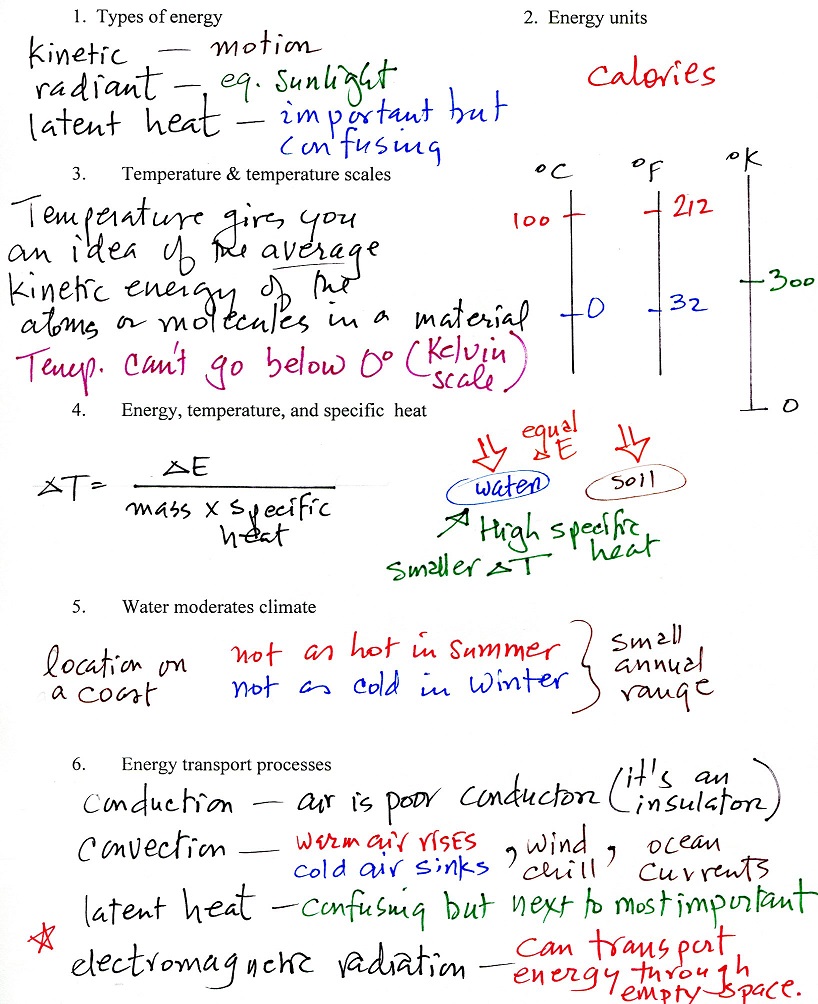 1. Types of energy
kinetic — motion
radiant — eg. sunlight
latent heat — important but
confusing
2. Energy units
calories
3. Temperature & temperature scales
Temperature gives you
an idea of the average
kinetic energy of the
atoms or molecules in a material
Temp. can't go below 0° (Kelvin
scale)
°C °F °K
100 212
300
0 32
0
4. Energy, temperature, and specific heat
ΔT = ΔE
mass x specific
heat
equal
ΔE
water soil
High specific
heat
smaller ΔT
5. Water moderates climate
location on
a coast
not as hot in summer
not as cold in winter
small
annual
range
6. Energy transport processes
conduction — air is poor conductor (it's an
insulator)
convection — warm air rises
cold air sinks
, wind
chill
, ocean
currents
latent heat — confusing but next to most important
electromagnetic radiation — can transport
energy through
empty space.